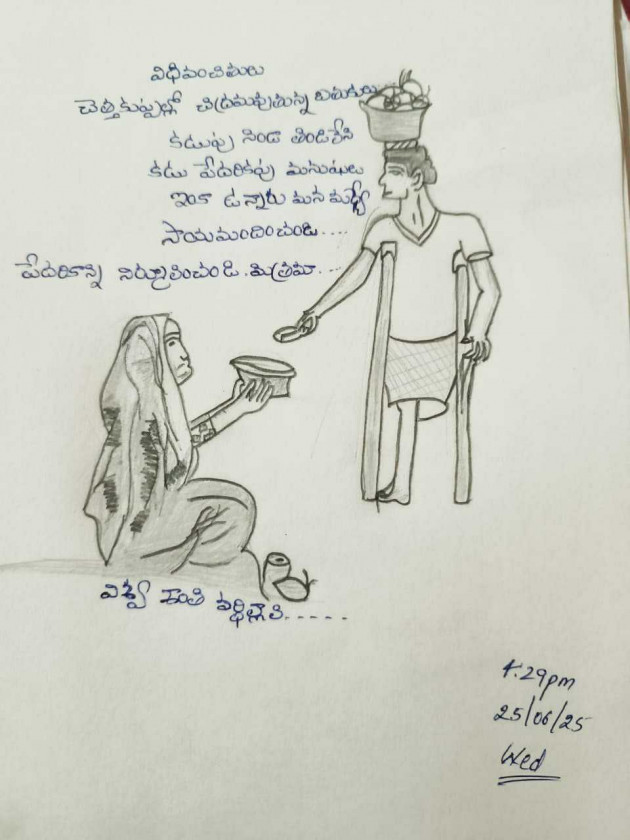 విధివంచితులు
చెత్తకుప్పల్లో చిద్రమవుతున్న బతుకులు...
కడుపు నిండా తిండిలేని
కడు పేదరికపు మనుషులు
ఇంకా ఉన్నారు మన మధ్యే
సాయమందించండి....
పేదరికాన్ని నిర్మూలించండి.మిత్రమా...
విశ్వ శాంతి వర్ధిల్లాలి.....
4:29pm
25/06/25
Wed